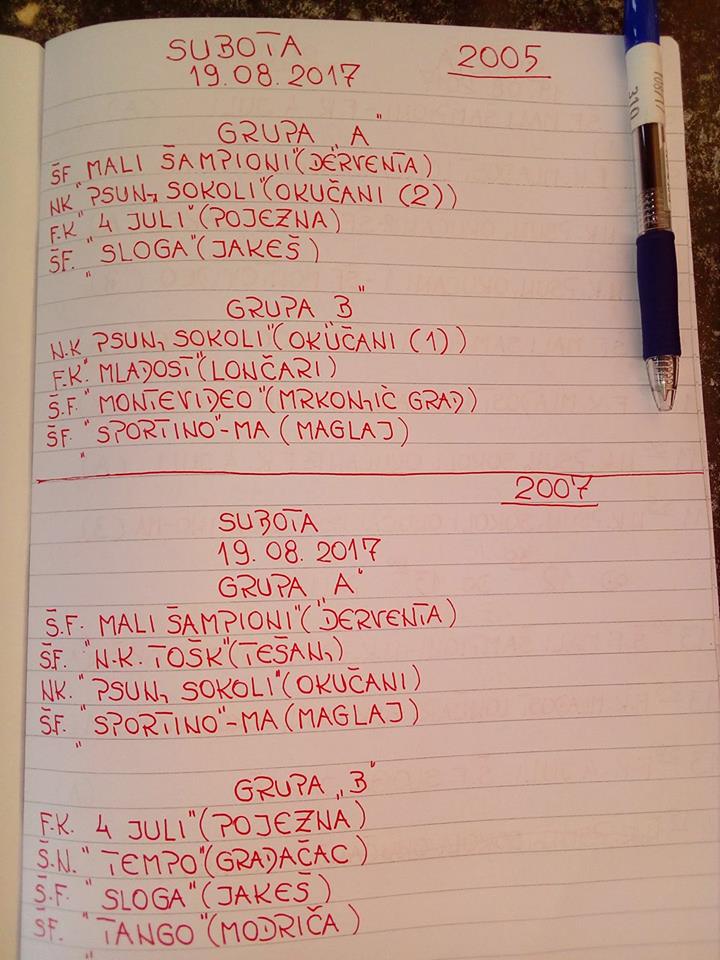 SUBOTA 2005
19.08.2017
GRUPA „A"
ŠF MALI ŠAMPIONI" (DERVENTA)
NK "PSUNJ SOKOLI" (OKUČANI (2))
F.K" 4 JULI" (POJEZNA)
ŠF. "SLOGA" (JAKEŠ)
GRUPA B"
N.K PSUNJ SOKOLI" (OKUČANI (1))
F.K." MLADOST" (LONČARI)
Š.F. "MONTEVIDEO" (MRKONJIĆ GRAD)
ŠF. "SPORTINO"-MA (MAGLAJ)
2007
SUBOTA
19.08.2017
GRUPA A"
Š.F. MALI ŠAMPIONI" (DERVENTA)
ŠF. "N.K. TOŠK" (TEŠANJ)
NK. "PSUNJ SOKOLI" (OKUČANI)
Š.F. "SPORTINO"-MA (MAGLAJ)
GRUPA „B"
F.K. 4 JULI" (POJEZNA)
Š.N. "TEMPO" (GRADAČAC)
Š.F. "SLOGA" (JAKEŠ)
ŠF. "TANGO" (MODRIČA)